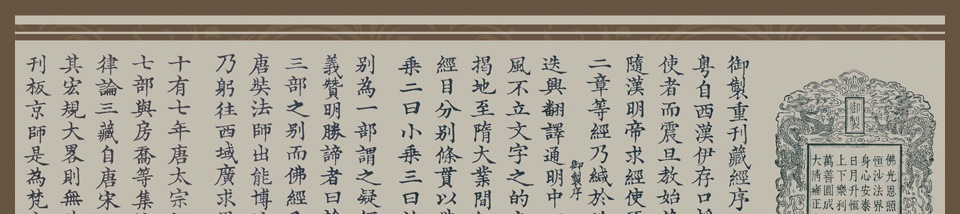 御製
佛光恩照
恒沙法界
身心安泰
日月升恒
上下樂利
萬善圓成
大清雍正
御製重刊藏經序
粵自西漢伊存口
使者而震旦教始
隨漢明帝求經使
二章等經乃緘於
御製序
迭興翻譯通明中
風不立文字之的
揭地至隋大業間
經目分別條貫以
乘二曰小乘三曰
別為一部謂之疑
義贊明勝諦者曰
三部之別而佛經
唐奘法師出能博
乃躬往西域廣求
十有七年唐太宗
七部與房喬等集
律論三藏自唐宋
其宏規大畧則無
刊板京師是為梵